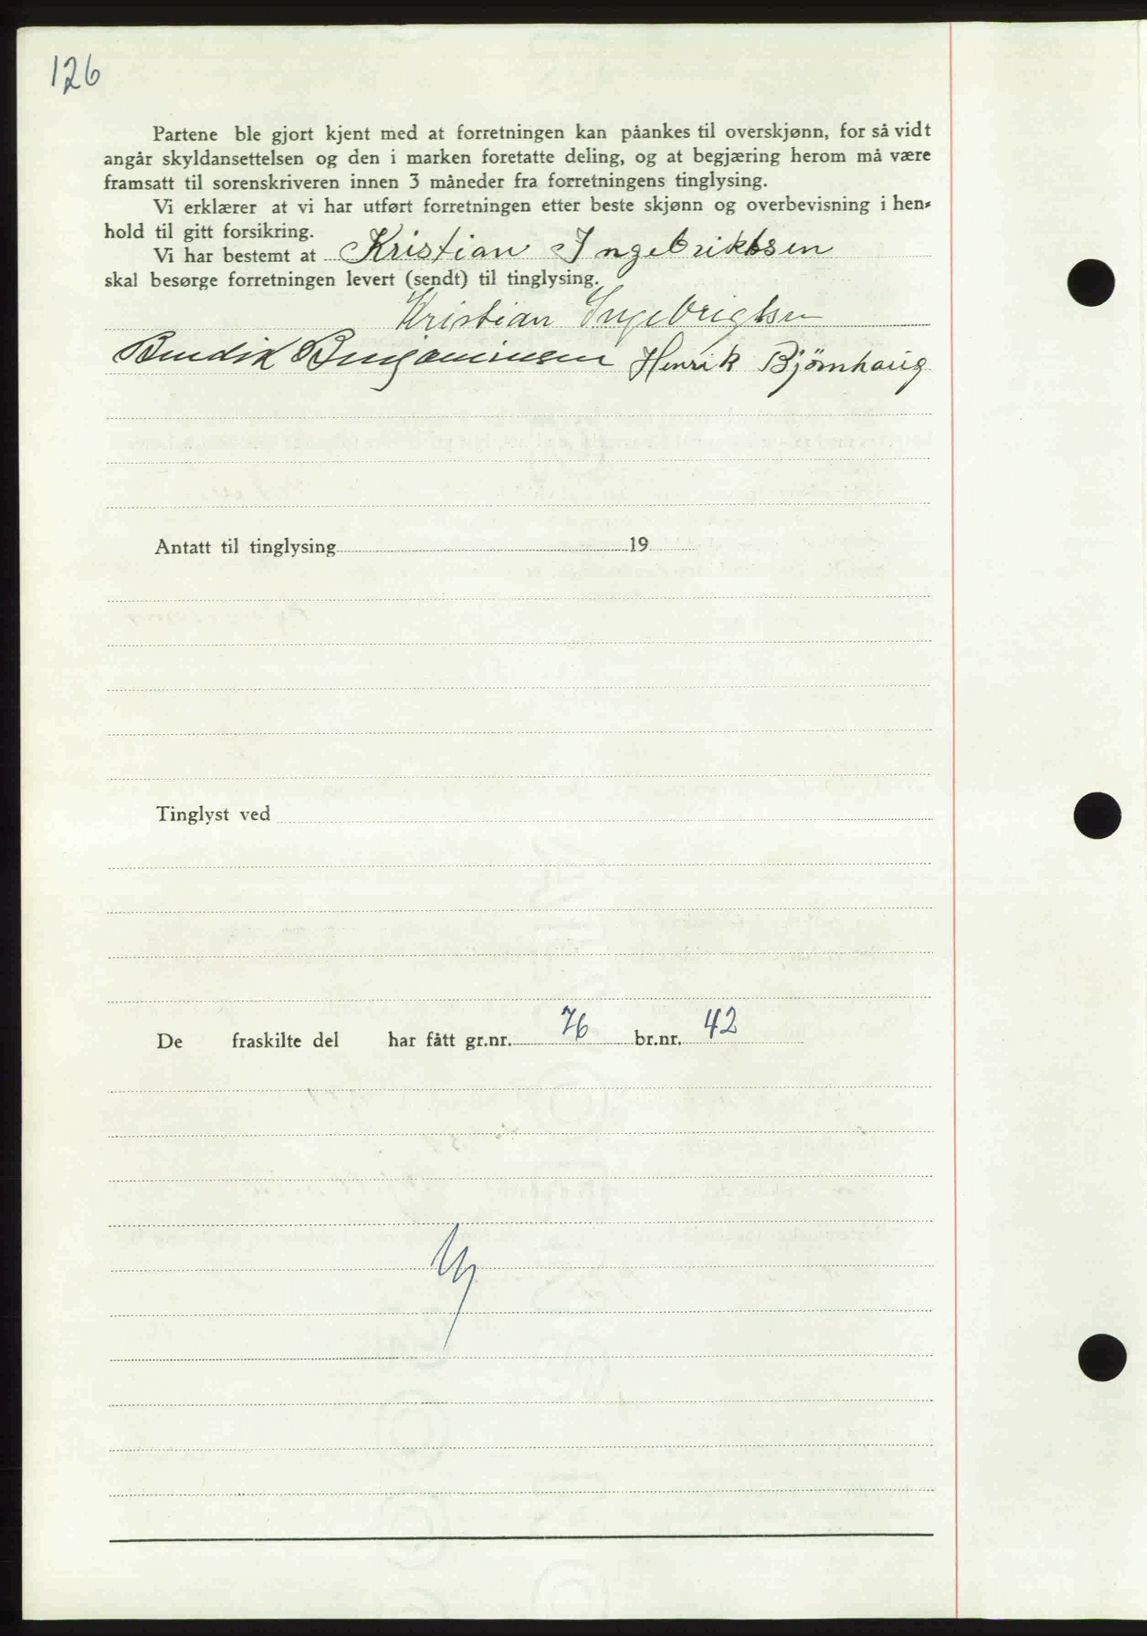 126
Partene ble gjort kjent med at forretningen kan påankes til overskjønn, for så vidt
angår skyldansettelsen og den i marken foretatte deling, og at begjæring herom må være
framsatt til sorenskriveren innen 3 måneder fra forretningens tinglysing.
Vi erklærer at vi har utført forretningen etter beste skjønn og overbevisning i hen-
hold til gitt forsikring.
Vi har bestemt at Kristian Ingebriktsen
skal besørge forretningen levert (sendt) til tinglysing.
Kristian Ingebrigtsen
Bendik Benjaminsen Henrik Bjørnhaug
Antatt til tinglysing 19
Tinglyst ved
De fraskilte del har fått gr.nr. 76 br.nr. 42